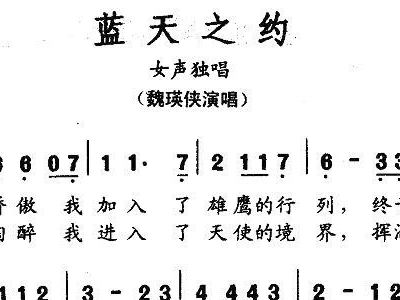 蓝天之约
女声独唱
(魏瑛侠演唱)
6 07 | 1 1· 7 | 2 117 | 6 - 33
傲 我 加 入 了 雄鹰的行 列，终
醉 我 进 入 了 天使的境 界，挥
112 | 3 - 23 | 4 443 | 2 - 12